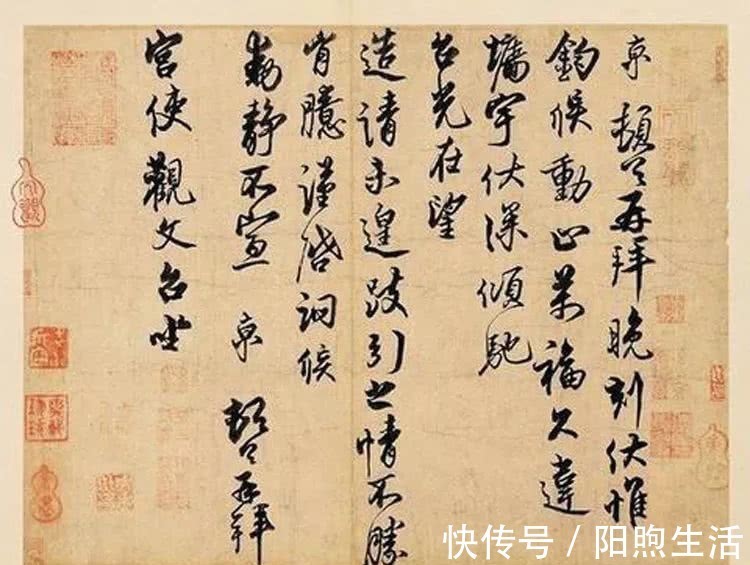 京 頓首再拜晚刻伏惟
鈞候動止萬福久違
墻宇伏深傾馳
台光在望
造請未遑跂引之情不勝
胷臆謹啓詞候
動靜不宣 京 頓首再拜
宮使觀文台坐
快传号 / 阳煦生活